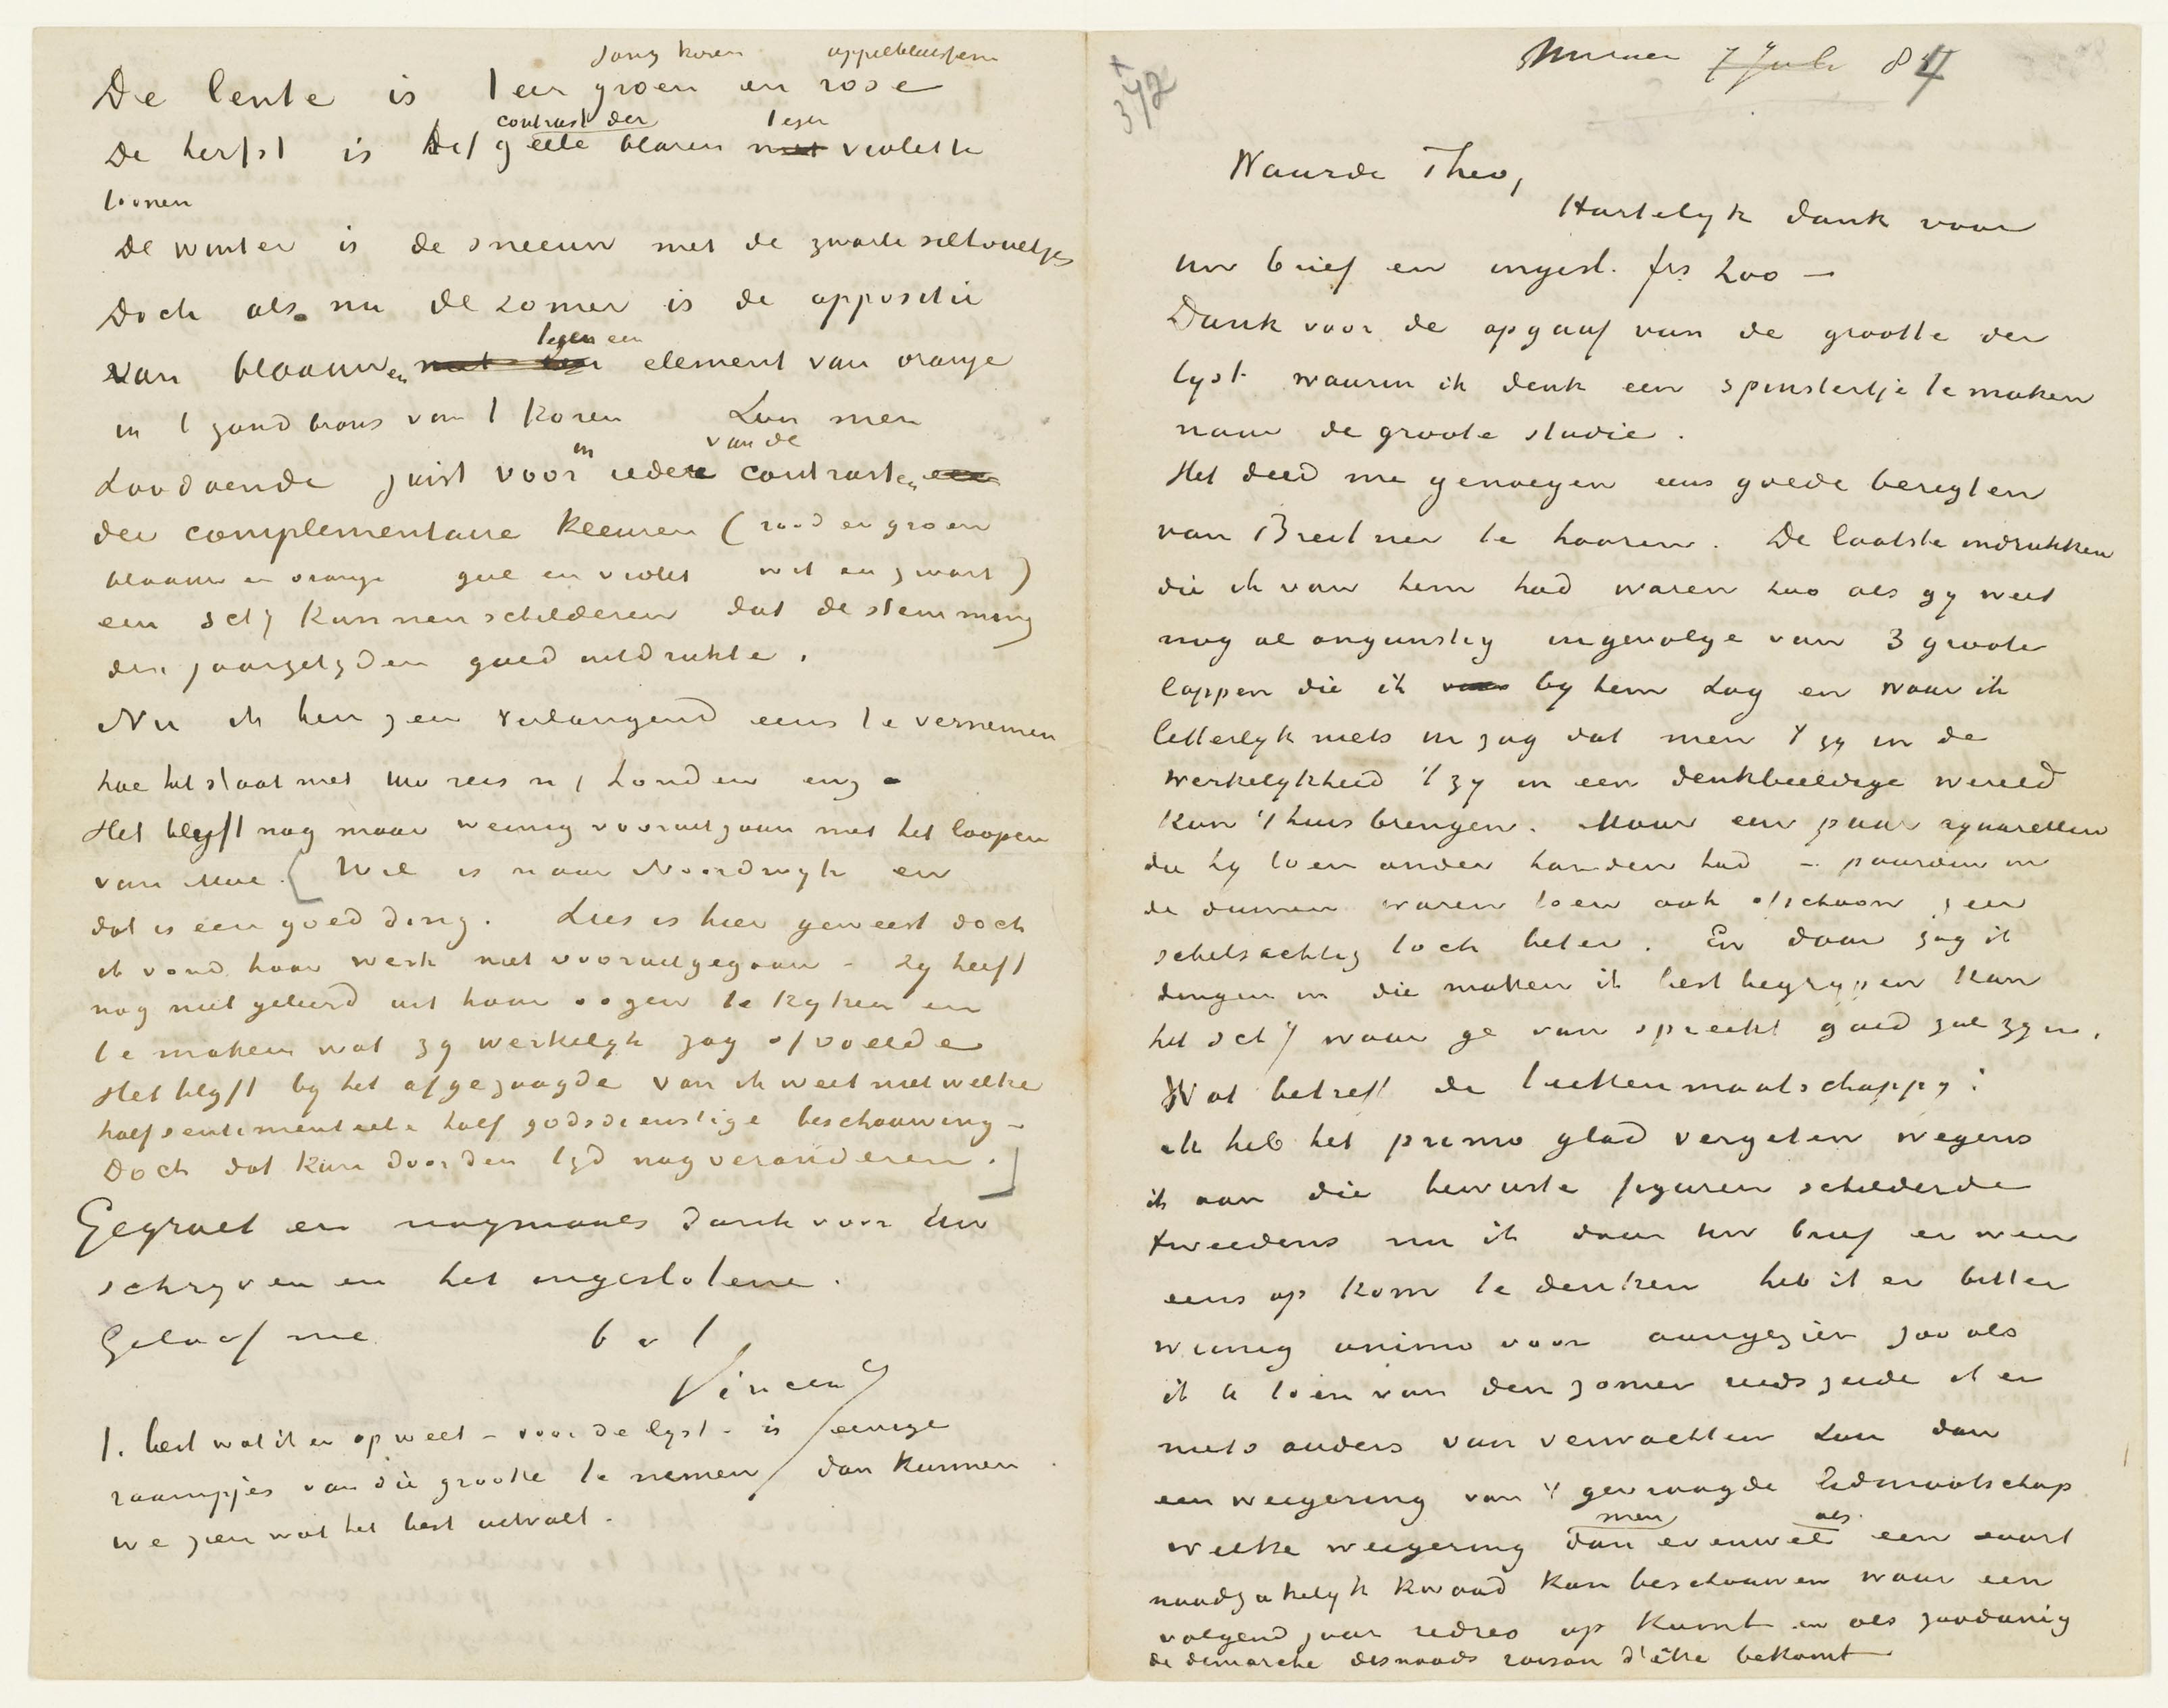 jong koren appelbloesem
De lente is teer groen en rose
contrast der tegen
De herfst is het geele blaren met violette
toonen
De winter is de sneeuw met de zwarte silhouetjes
Doch als nu de zomer is de oppositie
tegen een
van blaauwen met een element van oranje
in t goud brons van t koren Zou men
in van de
Zoodoende juist voor ieder contrasten een
der complementaire kleuren (rood en groen
blaauw en oranje geel en violet wit en zwart)
een schij kunnen schilderen dat de stemming
der jaargetijden goed uitdrukte.
Nu ik ben zeer verlangend eens te vernemen
hoe het staat met uw reis n/ Londen enz.
Het blijft nog maar weinig vooruitgaan met het loopen
van Moe. [Wil is naar Noordwijk en
dat is een goed ding. Lies is hier geweest doch
ik vond haar werk niet vooruitgegaan – Zij heeft
nog niet geleerd uit haar oogen te kijken en
te maken wat zij werkelijk zag of voelde
Het blijft bij het afgezaagde van ik weet niet welke
half sentimenteele half godsdienstige beschouwing –
Doch dat kan door den tijd nog veranderen.]
Gegroet en nogmaals dank voor Uw
schrijven en het ingeslotene.
Geloof me b a t
Vincent
t. best wat ik er op weet – voor de lijst – is eenige
raampjes van die grootte te nemen dan kunnen
we zien wat het best uitvalt.
Nuenen 7 Juli 84
372
Waarde Theo,
Hartelijk dank voor
Uw brief en ingesl. frs 200 –
Dank voor de opgaaf van de grootte der
lijst waarin ik denk een spinstertje te maken
naar de groote studie.
Het deed me genoegen eens goede berigten
van Breitner te hooren. De laatste indrukken
die ik van hem had waren zoo als gij weet
nog al ongunstig ingevolge van 3 groote
lappen die ik bij hem zag en waar ik
letterlijk niets in zag dat men 't zij in de
werkelijkheid 't zij in een denkbeeldige wereld
kan 't huis brengen. Maar een paar aquarellen
die hij toen onder handen had – paarden in
de duinen waren toen ook ofschoon zeer
schetsachtig toch beter. En daar zag ik
dingen in die maken ik best begrijpen kan
het schij waar ge van spreekt goed zal zijn.
Wat betreft de teekenmaatschappij:
ik heb het primo glad vergeten wegens
ik aan die bewuste figuren schilderde
tweedens nu ik door uw brief er weer
eens op kom te denken heb ik er bitter
weinig animo voor aangezien zoo als
ik U toen van den zomer reeds zeide ik er
niets anders van verwachten zou dan
een weigering van 't gevraagde lidmaatschap
men als
welke weigering dan evenwel een soort
noodzakelijk kwaad kan beschouwen waar een
volgend jaar redres op komt en als zoodanig
de demarche desnoods raison d'être bekomt